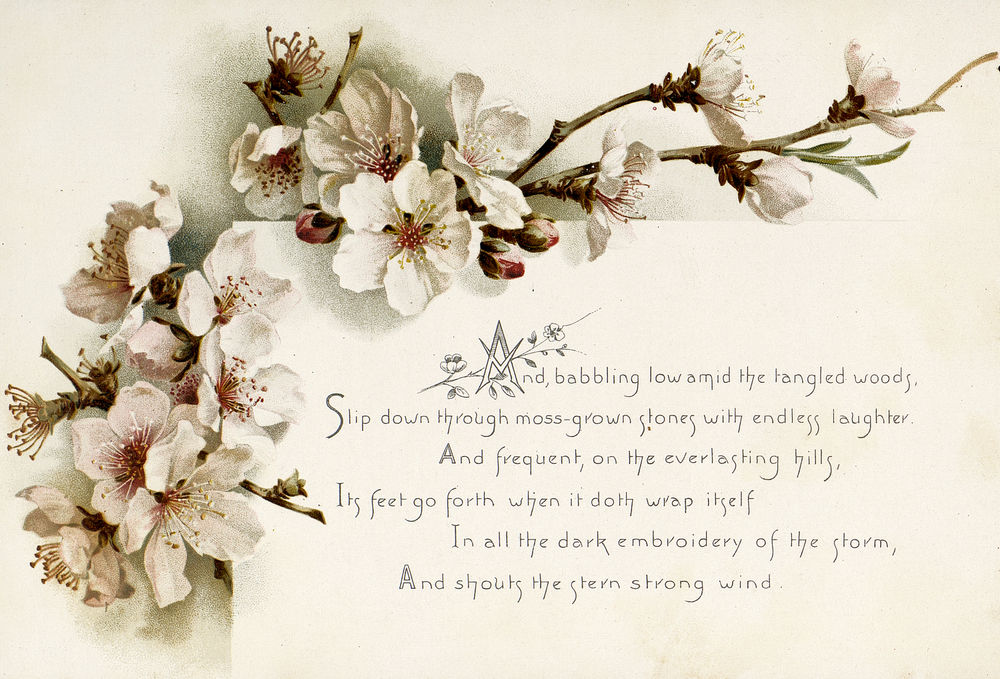 And, babbling low amid the tangled woods,
Slip down through moss-grown stones with endless laughter.
And frequent, on the everlasting hills,
Its feet go forth when it doth wrap itself
In all the dark embroidery of the storm,
And shouts the stern strong wind.